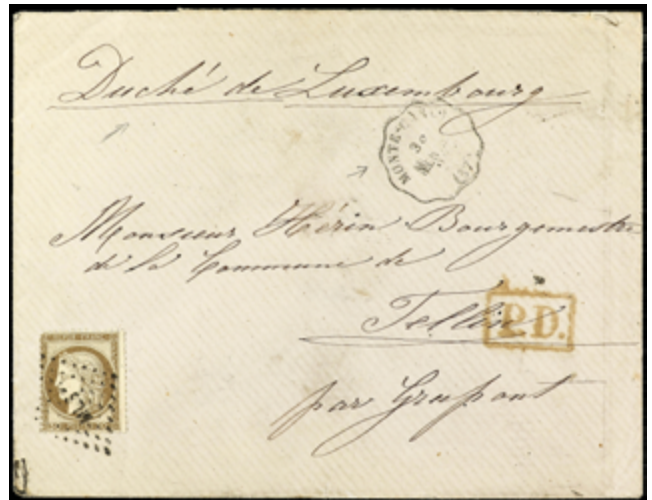 Duché de Luxembourg
MONTE-CARLO
Monsieur Hérin Bourgemestre
de la Commune de
Tellin
P.D.
par Grupont